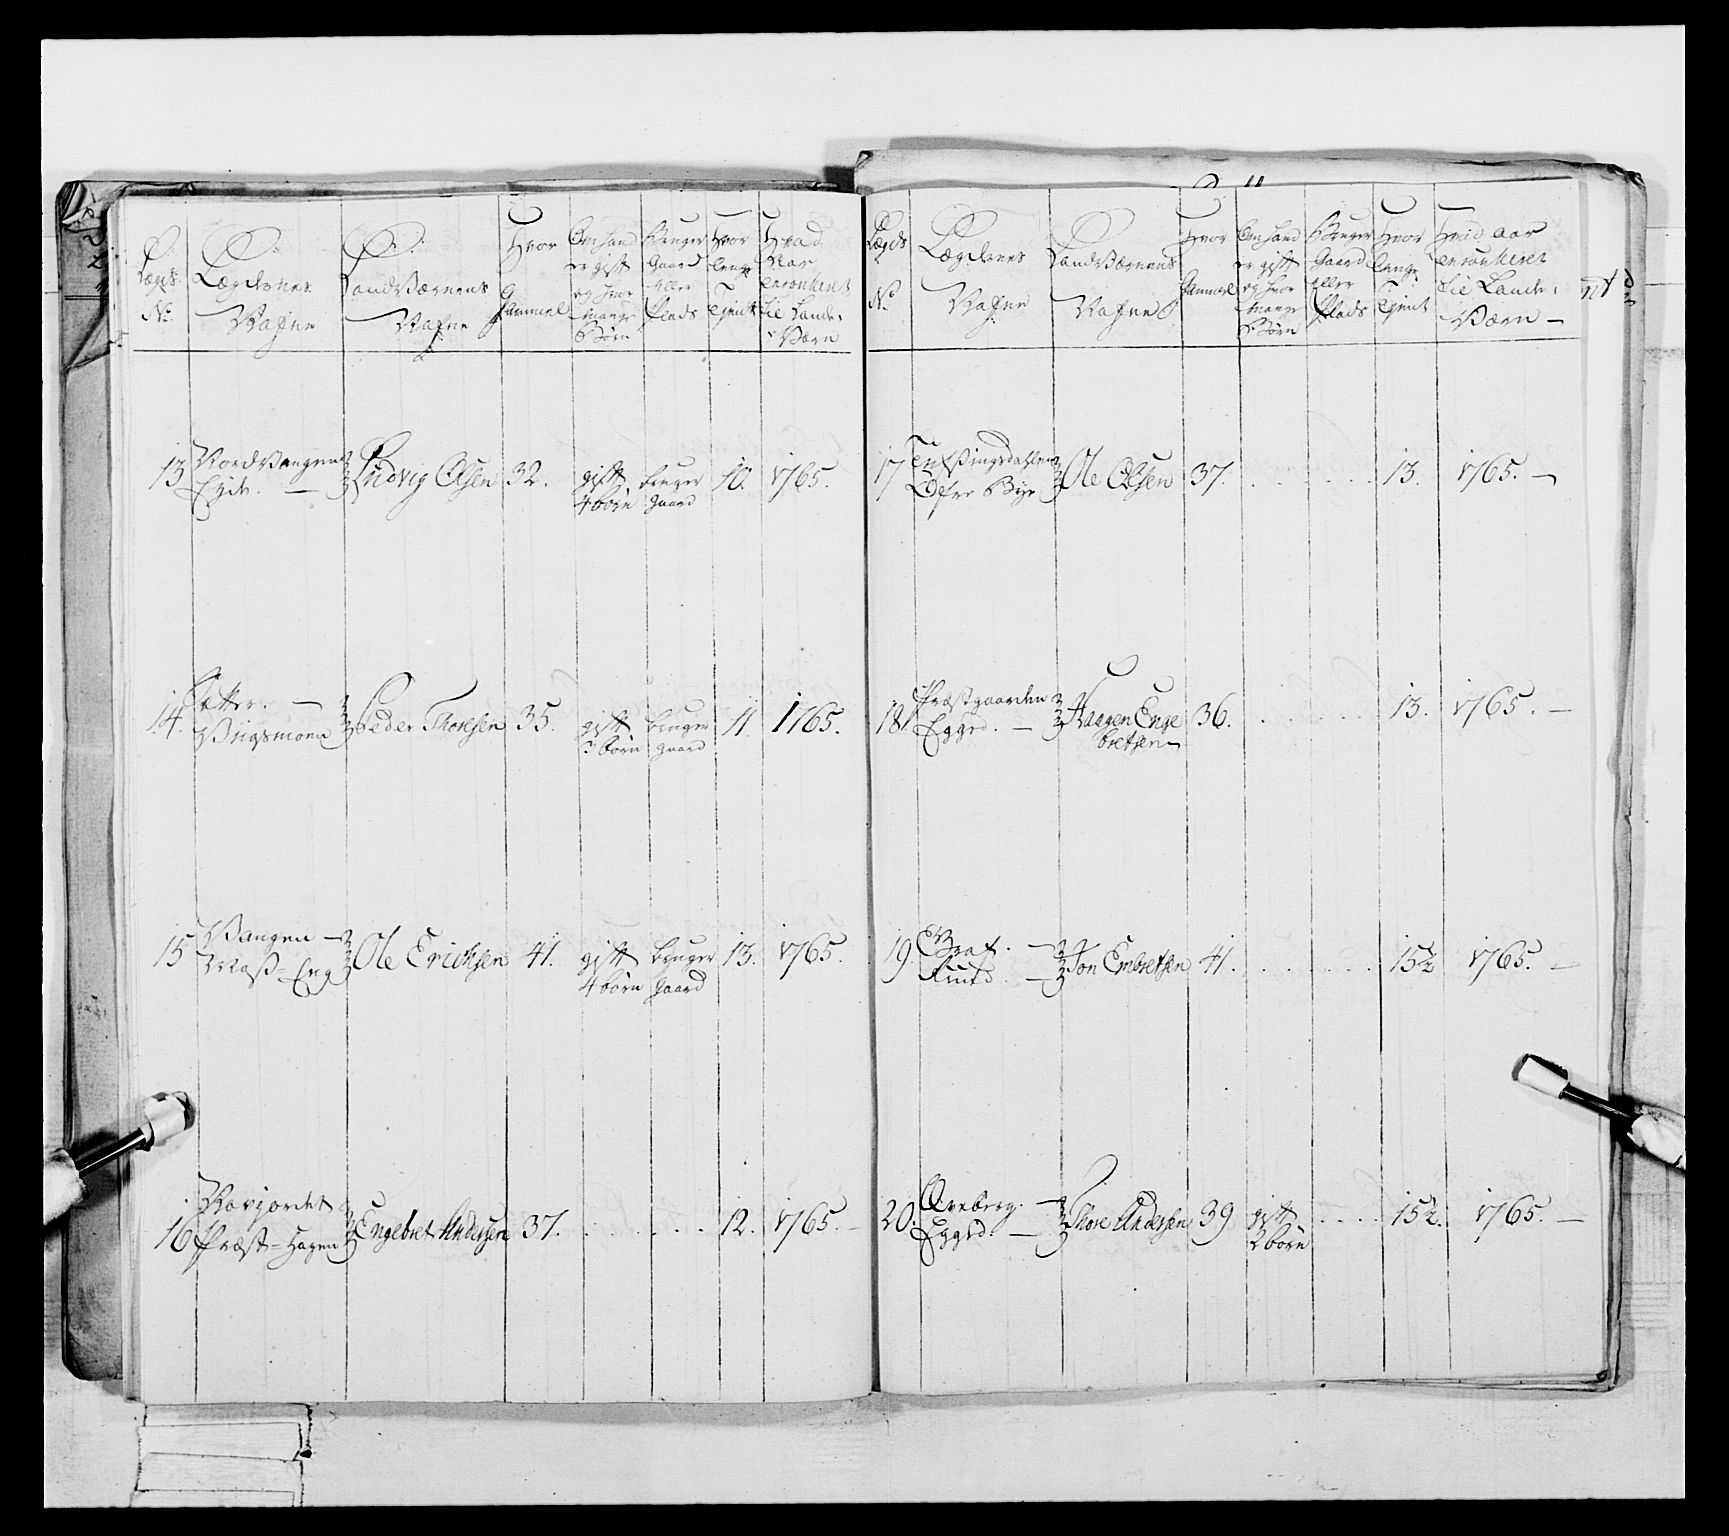 Lægds No.
Lægdernes Nafne
LandVærnens Nafne
Hvor Gammel
Om hand er gift og hvor mange Børn
Bruger Gaard eller Plads
Hvor lenge Tjent
Hvad Aar enrouleret til Lande Værn
13 NordVangen Eide. — Ludvig Olsen 32. gift 4 børn bruger gaard 10. 1765.
14. Sætter. — Viigsmoen Peder Thoresen 35. gift 3 børn bruger gaard 11. 1765.
15 Vangen — Moss=Eng Ole Erichsen 41. gift 4 børn bruger gaard 13. 1765.
16 Præst=Hagen Engebret Andersen 37. . . . . . . 12. 1765. —
Lægds No.
Lægdernes Nafne
LandVærnens Nafne
Hvor Gammel
Om hand er gift og hvor mange Børn
Bruger Gaard eller Plads
Hvor lenge Tjent
Hvad aar enrouleret til Lande Værn —
17 Øfre Bye Ole Olsen 37. . . . . . . 13. 1765. —
18. Præstgaarden — Haagen Enge bretsen 36. . . . . . . 13. 1765. —
19. — Jon Embretsen 41. . . . . . . 15½ 1765. —
20. — Thore Andersen 39 gift 2 børn . . . . 15½. 1765. —